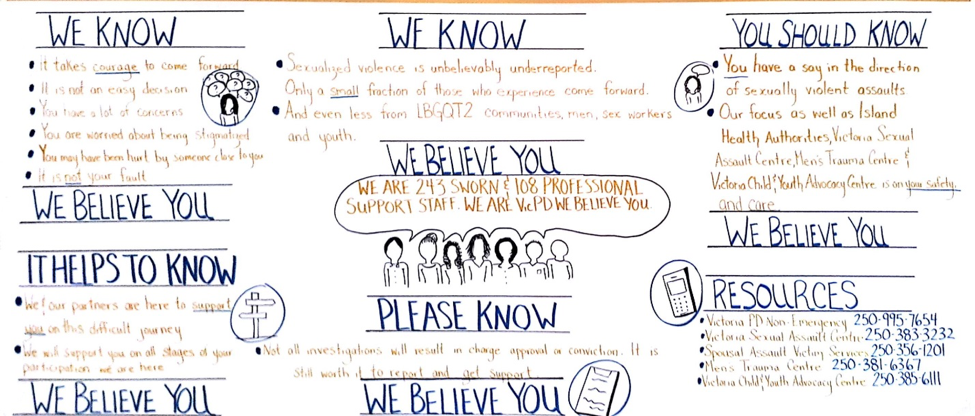 WE KNOW
It takes courage to come forward
It is not an easy decision
You have a lot of concerns
You are worried about being stigmatized
You may have been hurt by someone close to you
It is not your fault
WE BELIEVE YOU
IT HELPS TO KNOW
We & our partners are here to support
you on this difficult journey
We will support you on all stages of your
participation we are here
WE BELIEVE YOU
WE KNOW
Sexualized violence is unbelievably underreported.
Only a small fraction of those who experience come forward.
And even less from LBGQT2 communities, men, sex workers
and youth.
WE BELIEVE YOU
WE ARE 243 SWORN & 108 PROFESSIONAL
SUPPORT STAFF. WE ARE VicPD WE BELIEVE YOU
PLEASE KNOW
Not all investigations will result in charge approval or conviction. It is
still worth it to report and get support.
WE BELIEVE YOU
YOU SHOULD KNOW
You have a say in the direction
of sexually violent assaults
Our focus as well as Island
Health Authorities, Victoria Sexual
Assault Centre, Men's Trauma Centre &
Victoria Child & Youth Advocacy Centre is on your safety,
and care
WE BELIEVE YOU
RESOURCES
Victoria PD Non-Emergency 250-995-7654
Victoria Sexual Assault Centre 250-383-3232
Spousal Assault Victim Services 250-356-1201
Men's Trauma Centre 250-381-6367
Victoria Child & Youth Advocacy Centre 250-385-6111